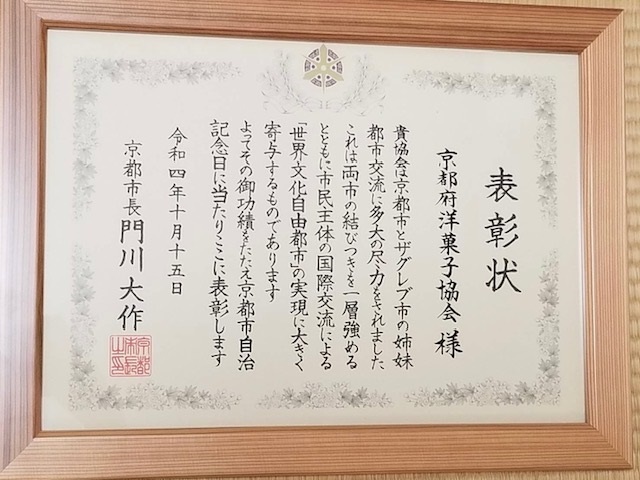 表彰状
京都府洋菓子協会 様
貴協会は京都市とザグレブ市の姉妹
都市交流に多大の尽力をされました
これは両市の結びつきを一層強める
とともに市民主体の国際交流による
「世界文化自由都市」の実現に大きく
寄与するものであります
よってその御功績をたたえ京都市自治
記念日に当たりここに表彰します
令和四年十月十五日
京都市長 門川大作
京都市長之印